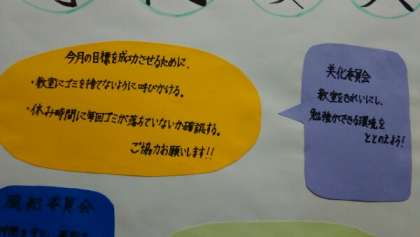 今月の目標を成功させるために、
・教室にゴミを捨てないように呼びかける。
・休み時間に毎回ゴミが落ちていないか確認する。
ご協力お願いします!!
美化委員会
教室をきれいにし、
勉強ができる環境を
ととのえよう!
風紀委員会